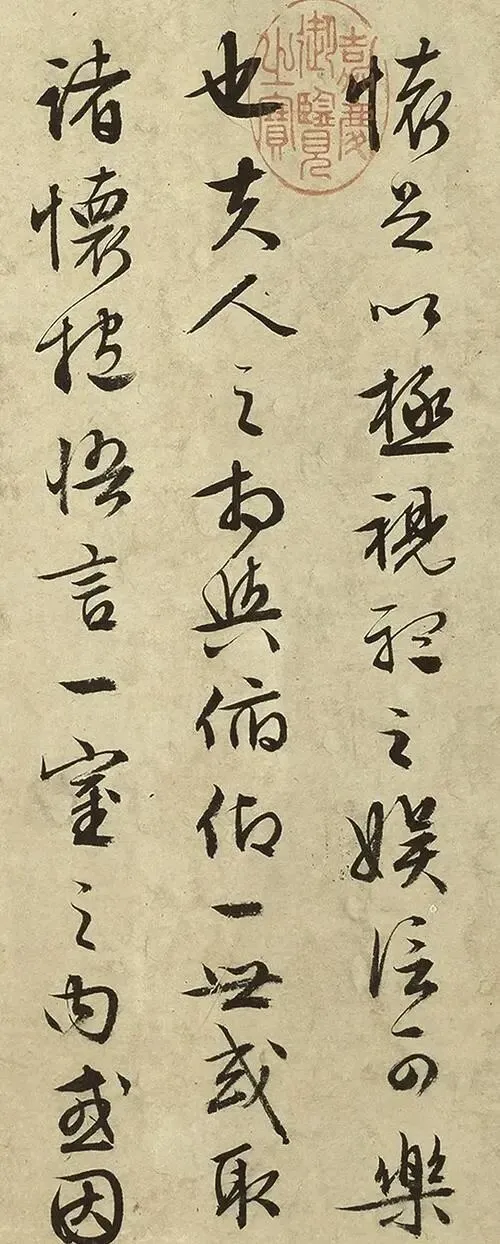 懷足以極視聽之娛信可樂
也夫人之相與俯仰一世或取
諸懷抱悟言一室之內或因
嘉慶御覽之寶